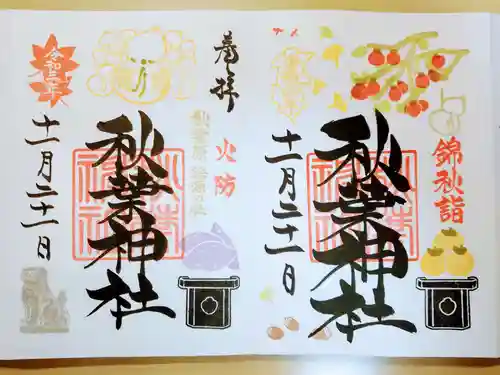 奉拝
火防
秋葉神社
十一月二十一日
令和三年
錦秋詣
秋葉神社
十一月二十一日